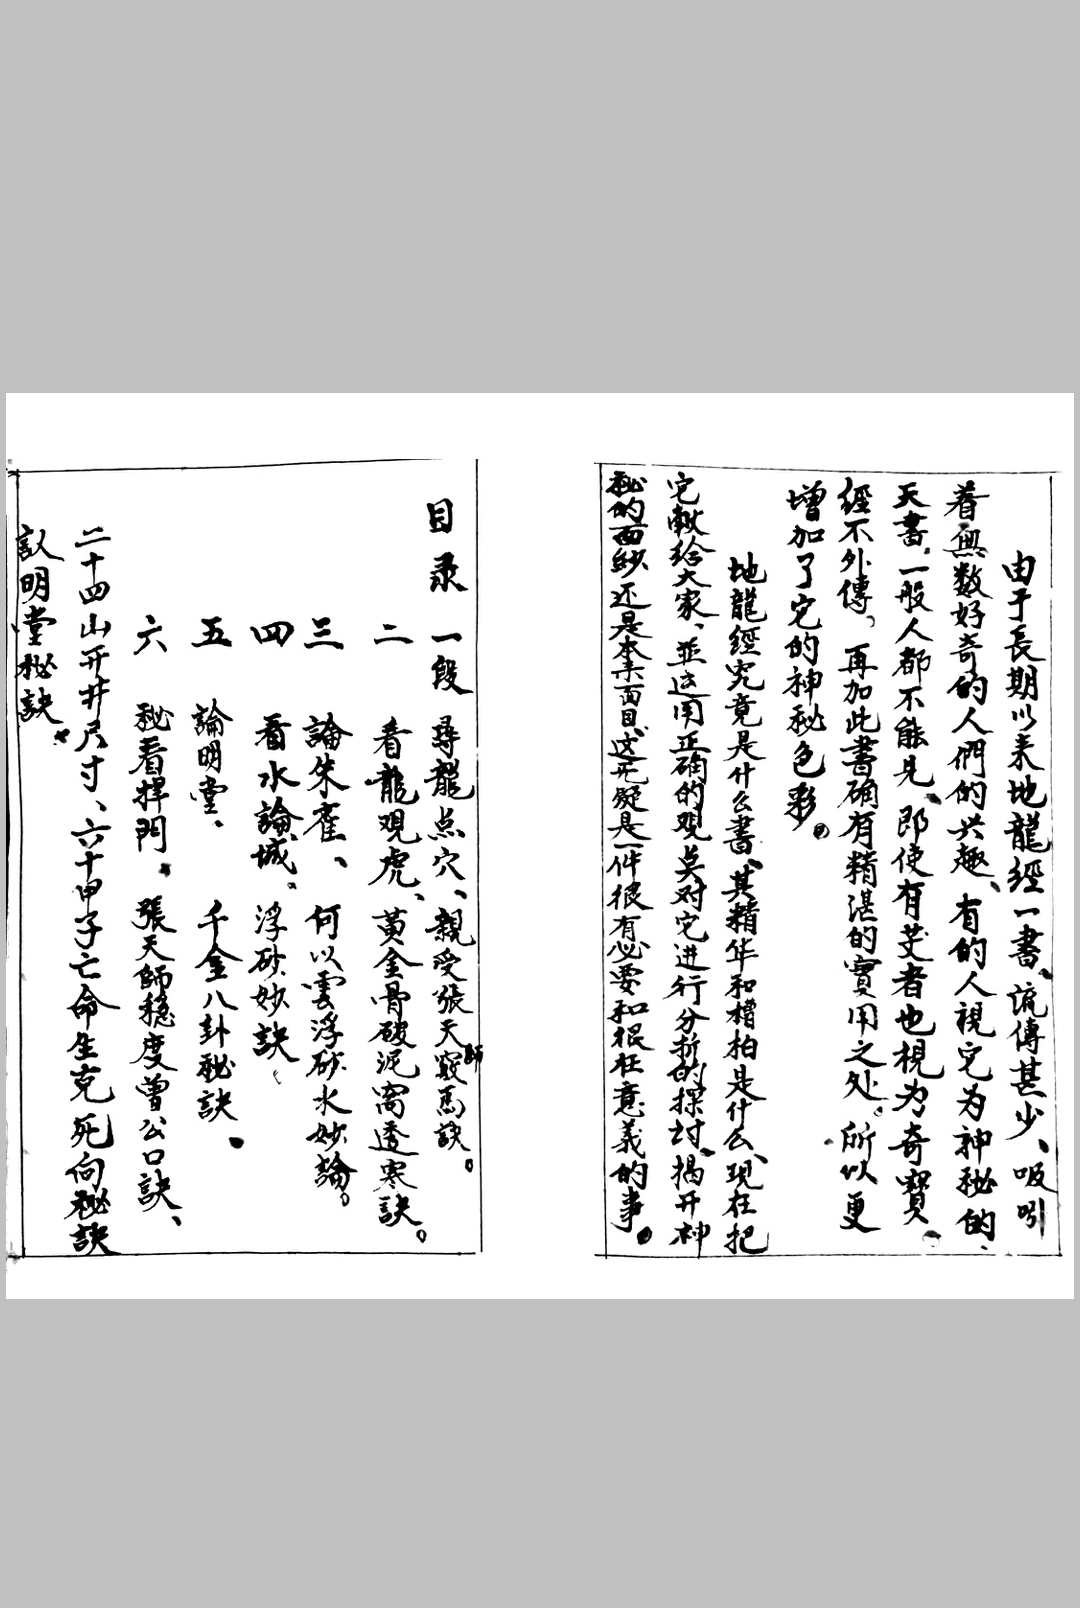 由于長期以来地龍經一書、流傳甚少、吸引
着無数好奇的人們的兴趣、有的人視它为神秘的、
天書、一般人都不能見、即使有艺者也視为奇寶、
經不外傳、再加此書确有精湛的實用之处、所以更
增加了它的神秘色彩。
地龍經究竟是什么書、其精华和糟柏是什么、現在把
它献给大家、並运用正确的观 对它进行分析的探讨、揭开神
秘的面纱还是本来面目、这无疑是一件很有必要和很 意義的事。
目录
一段 尋龍点穴、親受張天師 馬訣。
二 看龍观虎、黄金骨破泥窩透寒訣。
三 論朱雀、何以雲浮砂水妙論。
四 看水論城、浮砂妙訣
五 論明堂、千金八卦秘訣、
六 秘看捍門、張天師穩度曾公口訣、
二十四山开井尺寸、六十甲子亡命生克死向秘訣
認明堂秘訣。